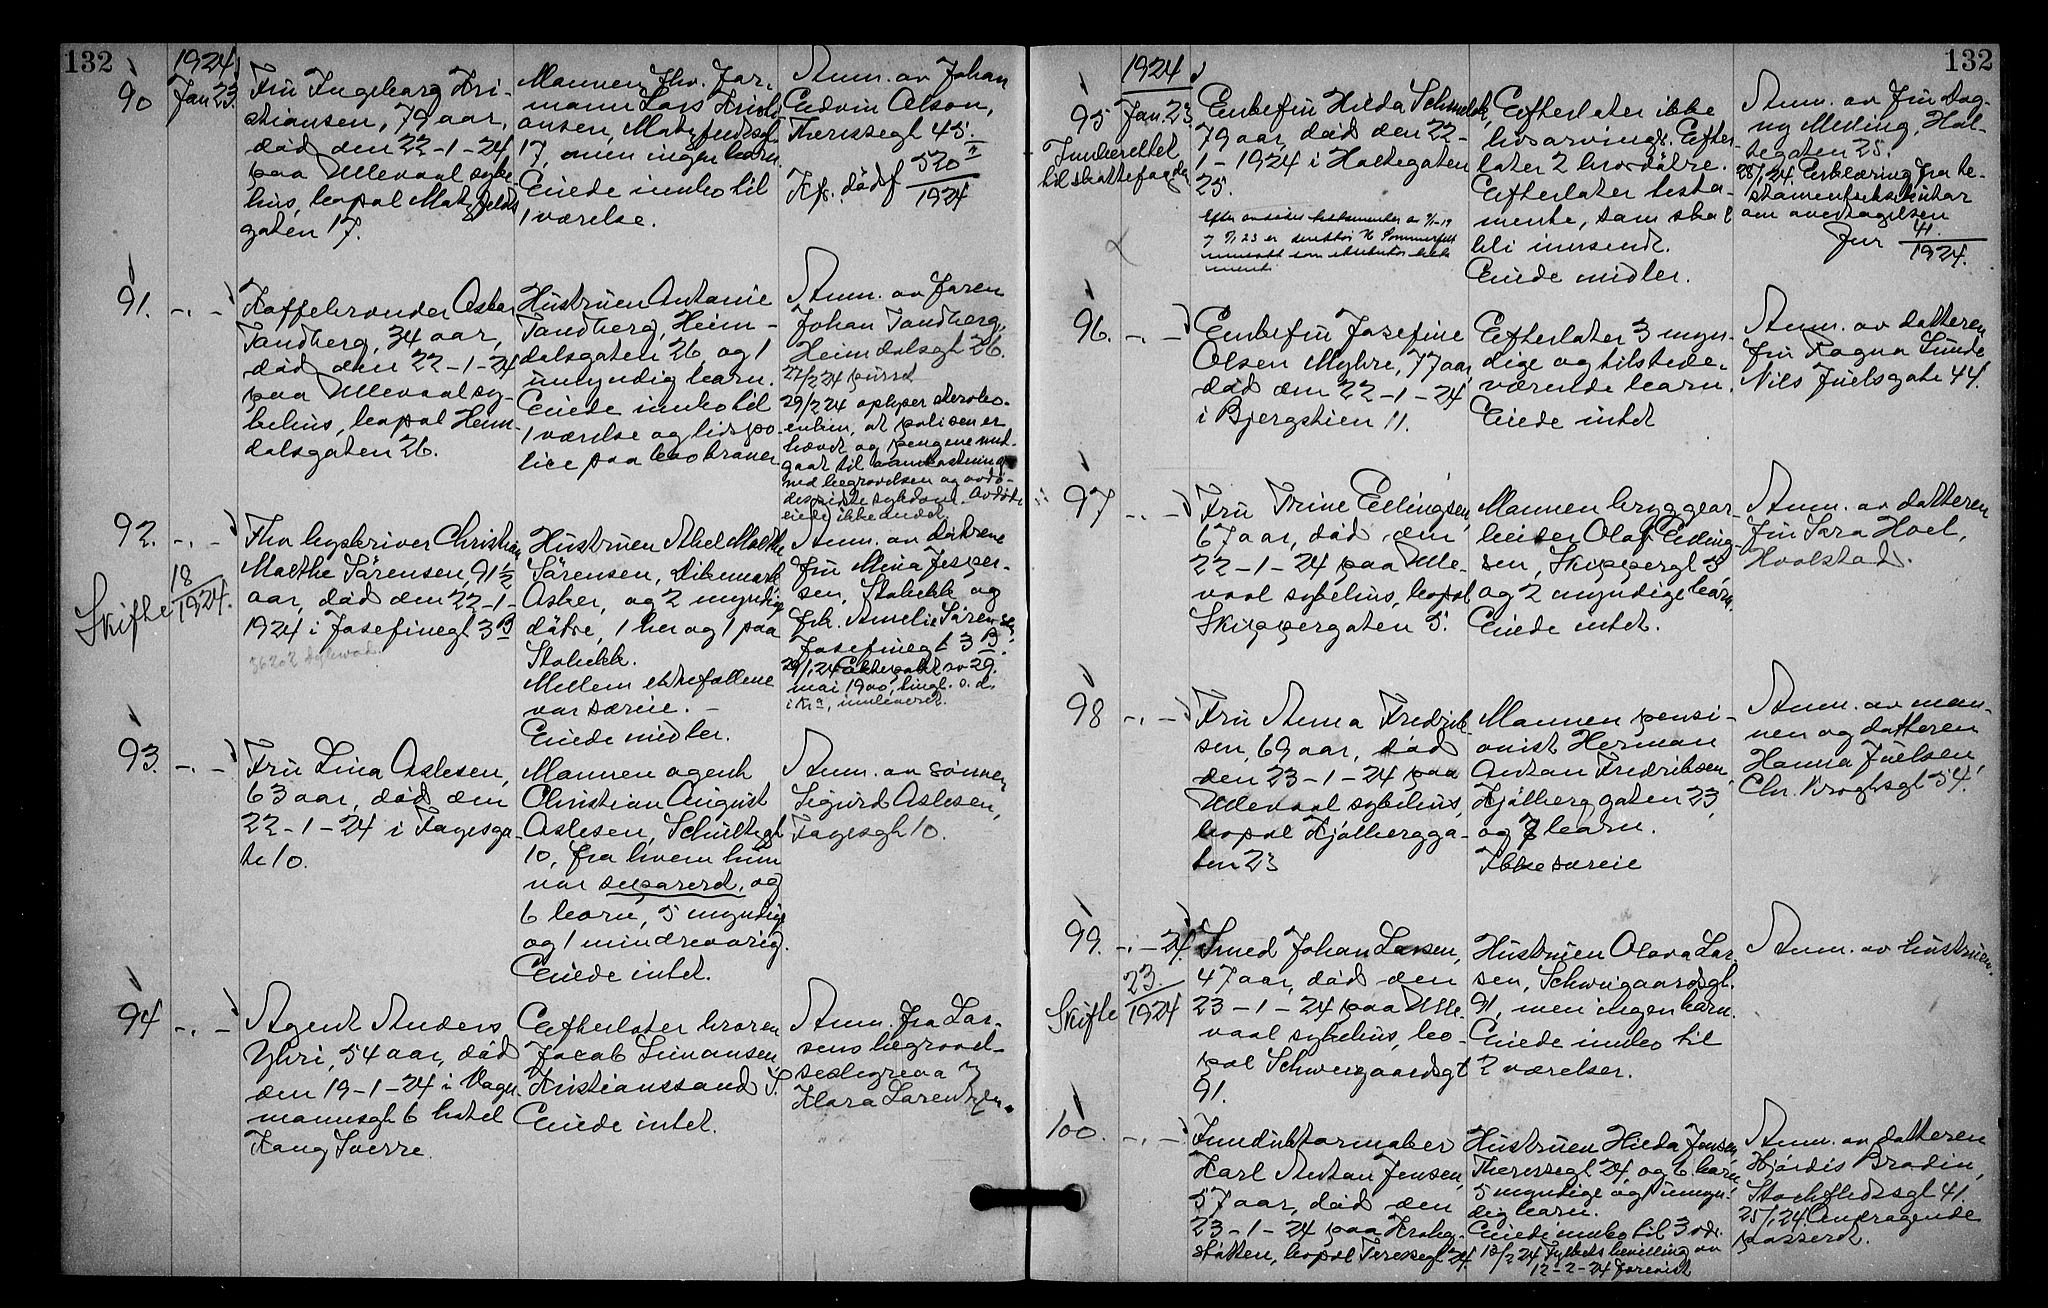 132
1924
90
Jan 23.
Fru Ingeborg Kri-
stiansen, 79 aar,
død den 22-1-24
paa Ullevaal syke-
hus, bopæl
gaten 17.
Manden, fhv. For-
mann Lars Kristi-
ansen,
17, men ingen barn.
Eiede innbo til
1 værelse.
Anm. av Johan
Edvin Olson,
Theresegt 45.
Kfr. dødf 520
1924
91. -.-
Kaffebrender Oskar
Tandberg, 34 aar,
død den 22-1-24
paa Ullevaal sy-
kehus, bopæl Heim-
dalsgaten 26.
Hustruen Antonie
Tandberg, Heim-
dalsgaten 26, og 1
umyndig barn.
Eiede innbo til
1 værelse og livspo-
lice paa kroner
Anm. av faren
Johan Tandberg,
Heimdalsgt 26.
27/2 24 purret
29/2 24 oplyser
enken, at polisen er
hævet og pengene med-
gaat til omkostninger
med begravelsen og avdø-
des siste sykdom. Avdøde
eiede ikke andet
92. -.-
Skifte 18
1924.
Fhv byskriver Christian
Malthe Sørensen, 91 1/2
aar, død den 22-1-
1924 i Josefinegt 3B
Hustruen Abel Malthe
Sørensen,
Asker, og 2 myndige
døtre, 1 her og 1 paa
Stabekk.
Mellem ektefællene
var særeie. -
Eiede midler.
Anm. av døtrene
fru Mina Jesper-
sen, Stabekk og
frk. Amelie Sørensen,
Josefinegt 3B.
29/1 24 Ektepakt av 29.
mai 1900, tingl. s.d.
i Kr.a, innleveret.
93. -.-
Fru Lina Aslesen,
63 aar, død den
22-1-24 i Fagesga-
te 10.
Mannen agent
Christian August
Aslesen, Schultzgt
10, fra hvem hun
var separert, og
6 barn, 5 myndige
og 1 mindreaarig.
Eiede intet.
Anm. av sønnen
Sigurd Aslesen,
Fagesgt 10.
94 -.-
Agent Anders
Yhri, 54 aar, død
den 19-1-24 i Vogn-
mannsgt 6 hotel
Kong Sverre.
Efterlater broren
Jacob Simonsen
Kristianssand S.
Eiede intet.
Anm. fra Lar-
sens begravel-
sesbyraa v
Klara Lorentzen.
132
1924
95 Jan. 23.
Innberettet
til skattefogden
Enkefru Hilda Schmelck,
79 aar, død den 22-
1-1924 i Holtegaten
25.
Efterlater ikke
livsarvinge. Efter-
later 2 brordøtre.
Efterlater testa-
mente, som skal
bli innsendt.
Eiede midler.
Anm. av fru Dag-
ny Melling, Hol-
tegaten 25.
28/1 24 Erklæring fra te-
stamentseksekutor
om overtagelsen
Jnr 41.
1924.
96. -.-
Enkefru Josefine
Olsen Myhre, 77 aar
død den 22-1-24
i Bjergstien 11.
Efterlater 3 myn-
dige og tilstede-
værende barn.
Eiede intet
Anm. av datteren
fru Ragna Lunde
Nils Juelsgate 44.
97 -.-
Fru Trine Edlingsen,
67 aar, død den
22-1-24 paa Ulle-
vaal sykehus, bopæl
Skippergaten 5.
Mannen bryggear-
beider Olaf Edling-
sen, Skippergt 5
og 2 myndige barn.
Eiede intet.
Anm. av datteren
fru Sara Hoel,
Hvalstad.
98 -.-
Fru Anna Fredrik-
sen, 69 aar, død
den 23-1-24 paa
Ullevaal sykehus,
bopæl Kjølbergga-
ten 23
Mannen pensi-
onist Herman
Anton Fredriksen
Kjølberggaten 23,
og 7 barn.
Ikke særeie
Anm. av man-
nen og datteren
Hanna Juelsen,
Chr. Kroghsgt 54.
99. -.- 24.
Skifte 23.
1924
Smed Johan Larsen,
47 aar, død den
23-1-24 paa Ulle-
vaal sykehus, bo-
pæl Schweigaardsgt
91.
Hustruen Olava Lar-
sen, Schweigaardsgt.
91, men ingen barn.
Eiede innbo til
2 værelser.
Anm. av hustruen.
100. -.-
Karl Anton Jensen,
57 aar, død den
23-1-24 paa Krohg-
støtten, bopæl Teresesgt 24.
Hustruen Hilda Jensen,
Theresegt 24, og 6 barn,
5 myndige og 1 umyn-
dig barn.
Eiede innbo til 3 vær.
18/2 24 Fylkets bevilling av
12-2-24 forevist
Anm. av datteren
Hjördis Brodin,
Stockfletsgt 41.
25/1 24 Andragende
passert.